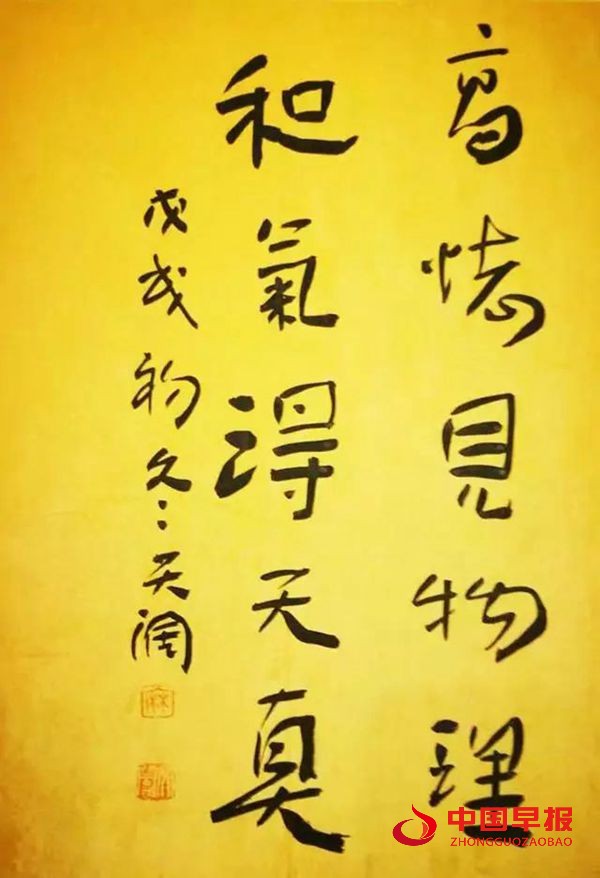 高懷見物理
和氣得天真
戊戌初冬天阔
中国早报
ZHONGGUOZAOBAO